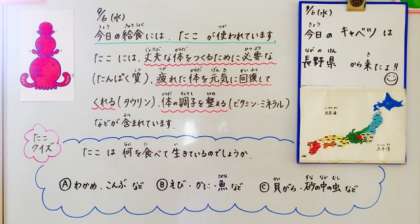 9/6 (水)
今日の給食には、たこが使われています。
たこには、丈夫な体をつくるために必要な
(たんぱく質)、疲れた体を元気に回復して
くれる(タウリン)、体の調子を整える(ビタミン・ミネラル)
などが含まれています。
たこ
クイズ
たこは何を食べて生きているのでしょうか
Ⓐ わかめ、こんぶなど
Ⓑ えび・かに・魚など
Ⓒ 貝がら・砂の中の虫など
9/6 (水)
今日のキャベツは
長野県から来たよ!!